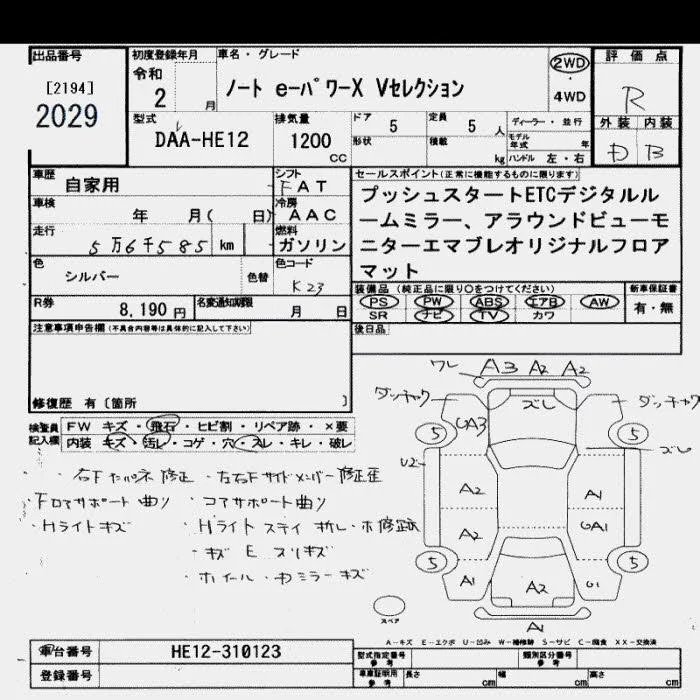 出品番号
[2194]
2029
初度登録年月
令和
2 月
車名・グレード
ノート e-パワーX Vセレクション
2WD
・
4WD
評価点
R
外装 内装
D B
型式
DAA-HE12
排気量
1200
CC
ドア
5
定員
5 人
形状
積載
kg
ディーラー・並行
モデル年式 年
ハンドル 左・右
車歴
自家用
シフト
FAT
車検
年 月( 日)
冷房
AAC
走行
5万6千585 km
燃料
ガソリン
色
シルバー
色替
色コード
K23
R券
8,190 円
名変通知期限
月 日
セールスポイント(正常に機能するものに限ります)
プッシュスタートETCデジタルル
ームミラー、アラウンドビューモ
ニターエマブレオリジナルフロア
マット
装備品 (純正品に限り○をつけてください)
PS PW ABS エアB AW
SR ナビ TV カワ
新車保証書
有・無
後日品
注意事項申告欄(不具合内容等は具体的に記入して下さい)
修復歴 有〔箇所 〕
検査員
記入欄
FW キズ・飛石・ヒビ割・リペア跡・×要
内装 キズ・汚れ・コゲ・穴・スレ・キレ・破レ
・右Fインパネ修正 ・左右Fサイドメンバー修正歪
・Fロアサポート曲り ・コアサポート曲り
・Hライトキズ ・Hライトステイ折れ・ホ修跡
・キズ E スリキズ
・ホイール・Dミラーキズ
ワレ A3 A2 A2
ダンチャク
ズレ
ダンチャク
GA3
5
5
ズレ
U2
A2
A1
A2
GA1
5
5
A1
A2
G1
スペア
A1
A-キズ E-エクボ U-凹み W-補修跡 S-サビ C-腐食 XX-交換済
車台番号
HE12-310123
登録番号
型式指定番号
参考
類別区分番号
参考
車庫証明用
参考
長さ cm
幅 cm
高さ cm